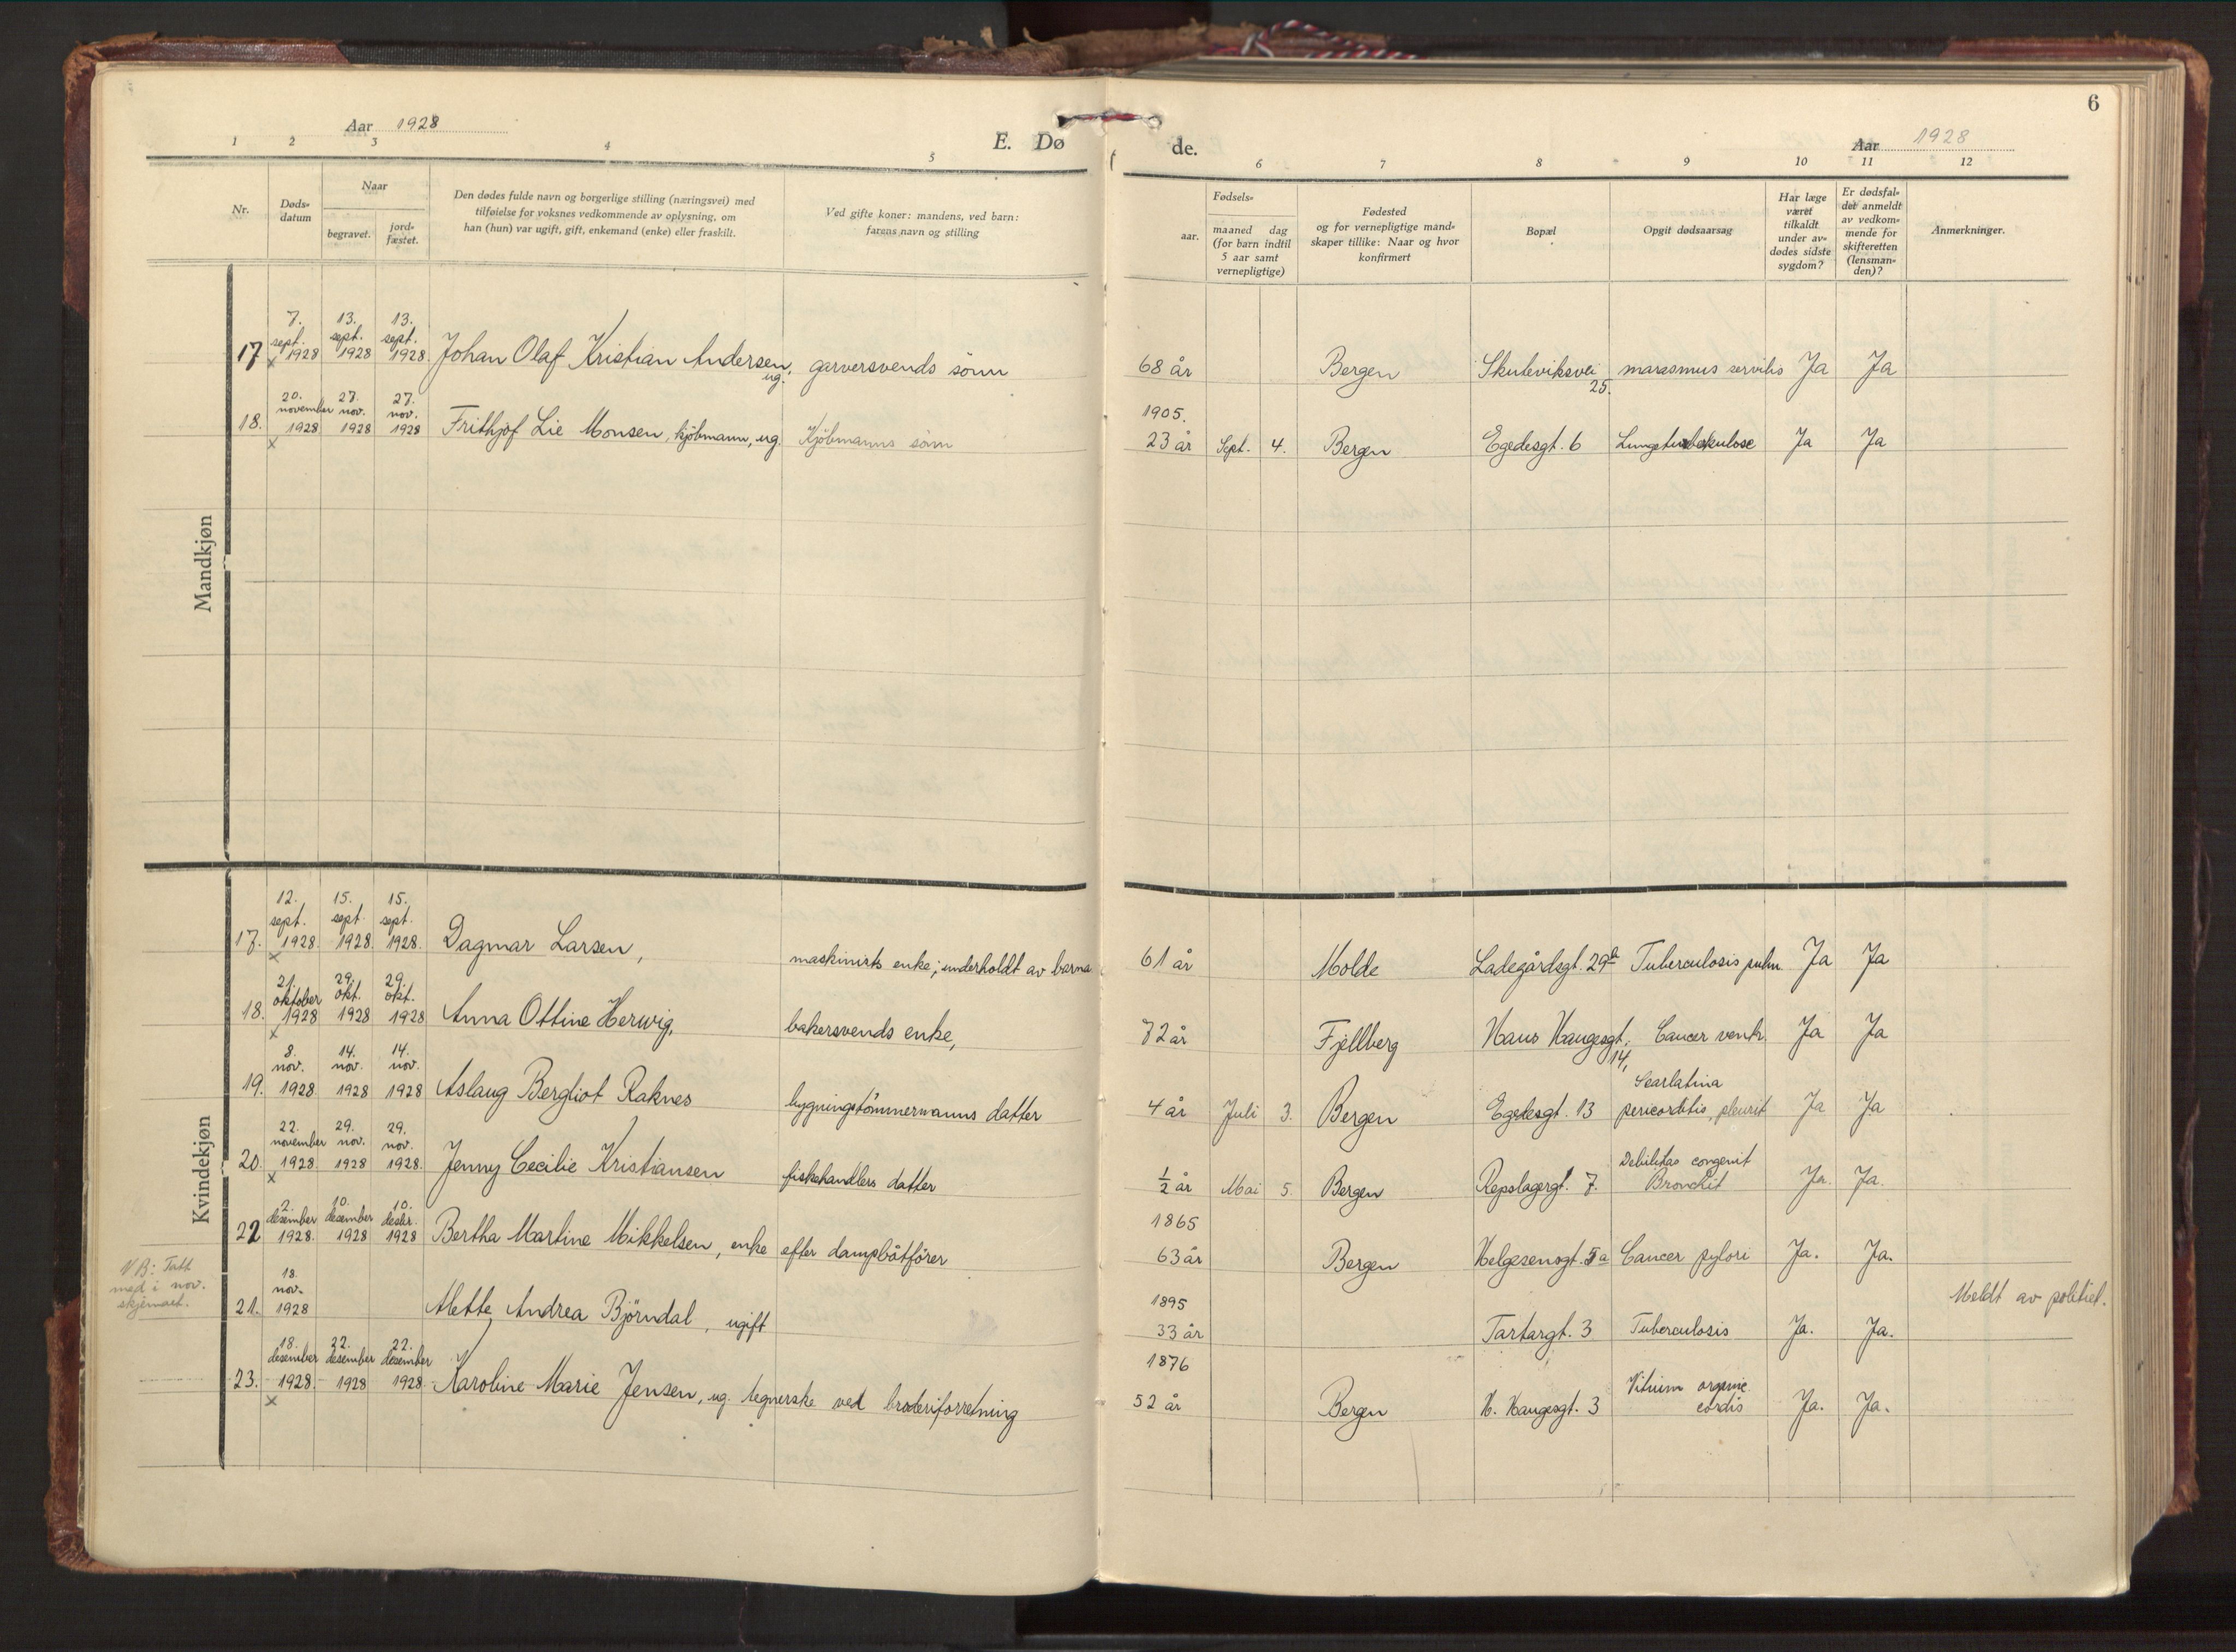 6
Aar 1928
E. Dø
de.
Aar 1928
1 2 3 4 5 6 7 8 9 10 11 12
Nr.
Døds-
datum
Naar
begravet.
jord-
fæstet.
Den dødes fulde navn og borgerlige stilling (næringsvei) med
tilføielse for voksnes vedkommende av oplysning, om
han (hun) var ugift, gift, enkemand (enke) eller fraskilt.
Ved gifte koner: mandens, ved barn:
farens navn og stilling
Fødsels-
aar.
maaned dag
(for barn indtil
5 aar samt
vernepligtige)
Fødested
og for vernepligtige mand-
skaper tillike: Naar og hvor
konfirmert
Bopæl
Opgit dødsaarsag
Har læge
været
tilkaldt
under av-
dødes sidste
sygdom?
Er dødsfal-
det anmeldt
av vedkom-
mende for
skifteretten
(lensman-
den)?
Anmerkninger.
Mandkjøn
7. 13. 13.
sept. sept. sept.
17 x 1928 1928 1928. Johan Olaf Kristian Andersen, garversvends sönn 68 år Bergen Skuteviksvei marasmus servilis Ja Ja
ug. 25.
20. 27. 27.
november nov. nov. 1905.
18. 1928 1928 1928 Frithjof Lie Monsen, kjöbmann, ug. Kjöbmanns sönn 23 år Sept. 4. Bergen Egedesgt. 6 Lungetuberkulose Ja Ja
x
Kvindekjøn
12. 15. 15.
sept. sept. sept.
17. 1928. 1928. 1928. Dagmar Larsen, maskinists enke; underholdt av barna 61 år Molde Ladegårdsgt. 29b Tuberculosis pulm. Ja Ja
x
21. 29. 29.
oktober okt. okt.
18. 1928 1928 1928 Anna Ottine Herwig, bakersvends enke, 72 år Fjellberg Hans Haugesgt. Cancer ventr. Ja Ja
x 14,
8. 14. 14.
nov. nov. nov. Scarlatina
19. 1928 1928 1928 Aslaug Bergliot Raknes bygningstömmermanns datter 4 år Juli 3. Bergen Egedesgt. 13 pericorditis, pleurit Ja Ja
22. 29. 29.
november nov. nov. Debilitas congenit
20. 1928. 1928 1928. Jenny Cecilie Kristiansen fiskehandlers datter ½ år Mai 5. Bergen Repslagergt. 7. Bronchit Ja. Ja.
x
2. 10. 10.
desember desember desbr. 1865
22 1928. 1928 1928 Bertha Martine Mikkelsen, enke efter dampbåtförer 63 år Bergen Helgesensgt. 5a Cancer pylori Ja. Ja.
NB: Tatt
med i nov.
skjemaet.
18.
nov. 1895 Meldt av politiet.
21. 1928 Mette Andrea Björndal, ugift 33 år Tartargt. 3 Tuberculosis Ja. Ja.
18. 22. 22.
desember desember desember 1876 Vitium organic.
23. 1928. 1928 1928. Karoline Marie Jensen, ug. tegnerske ved broderiforretning 52 år Bergen H. Haugesgt. 3 cordis Ja. Ja.
x